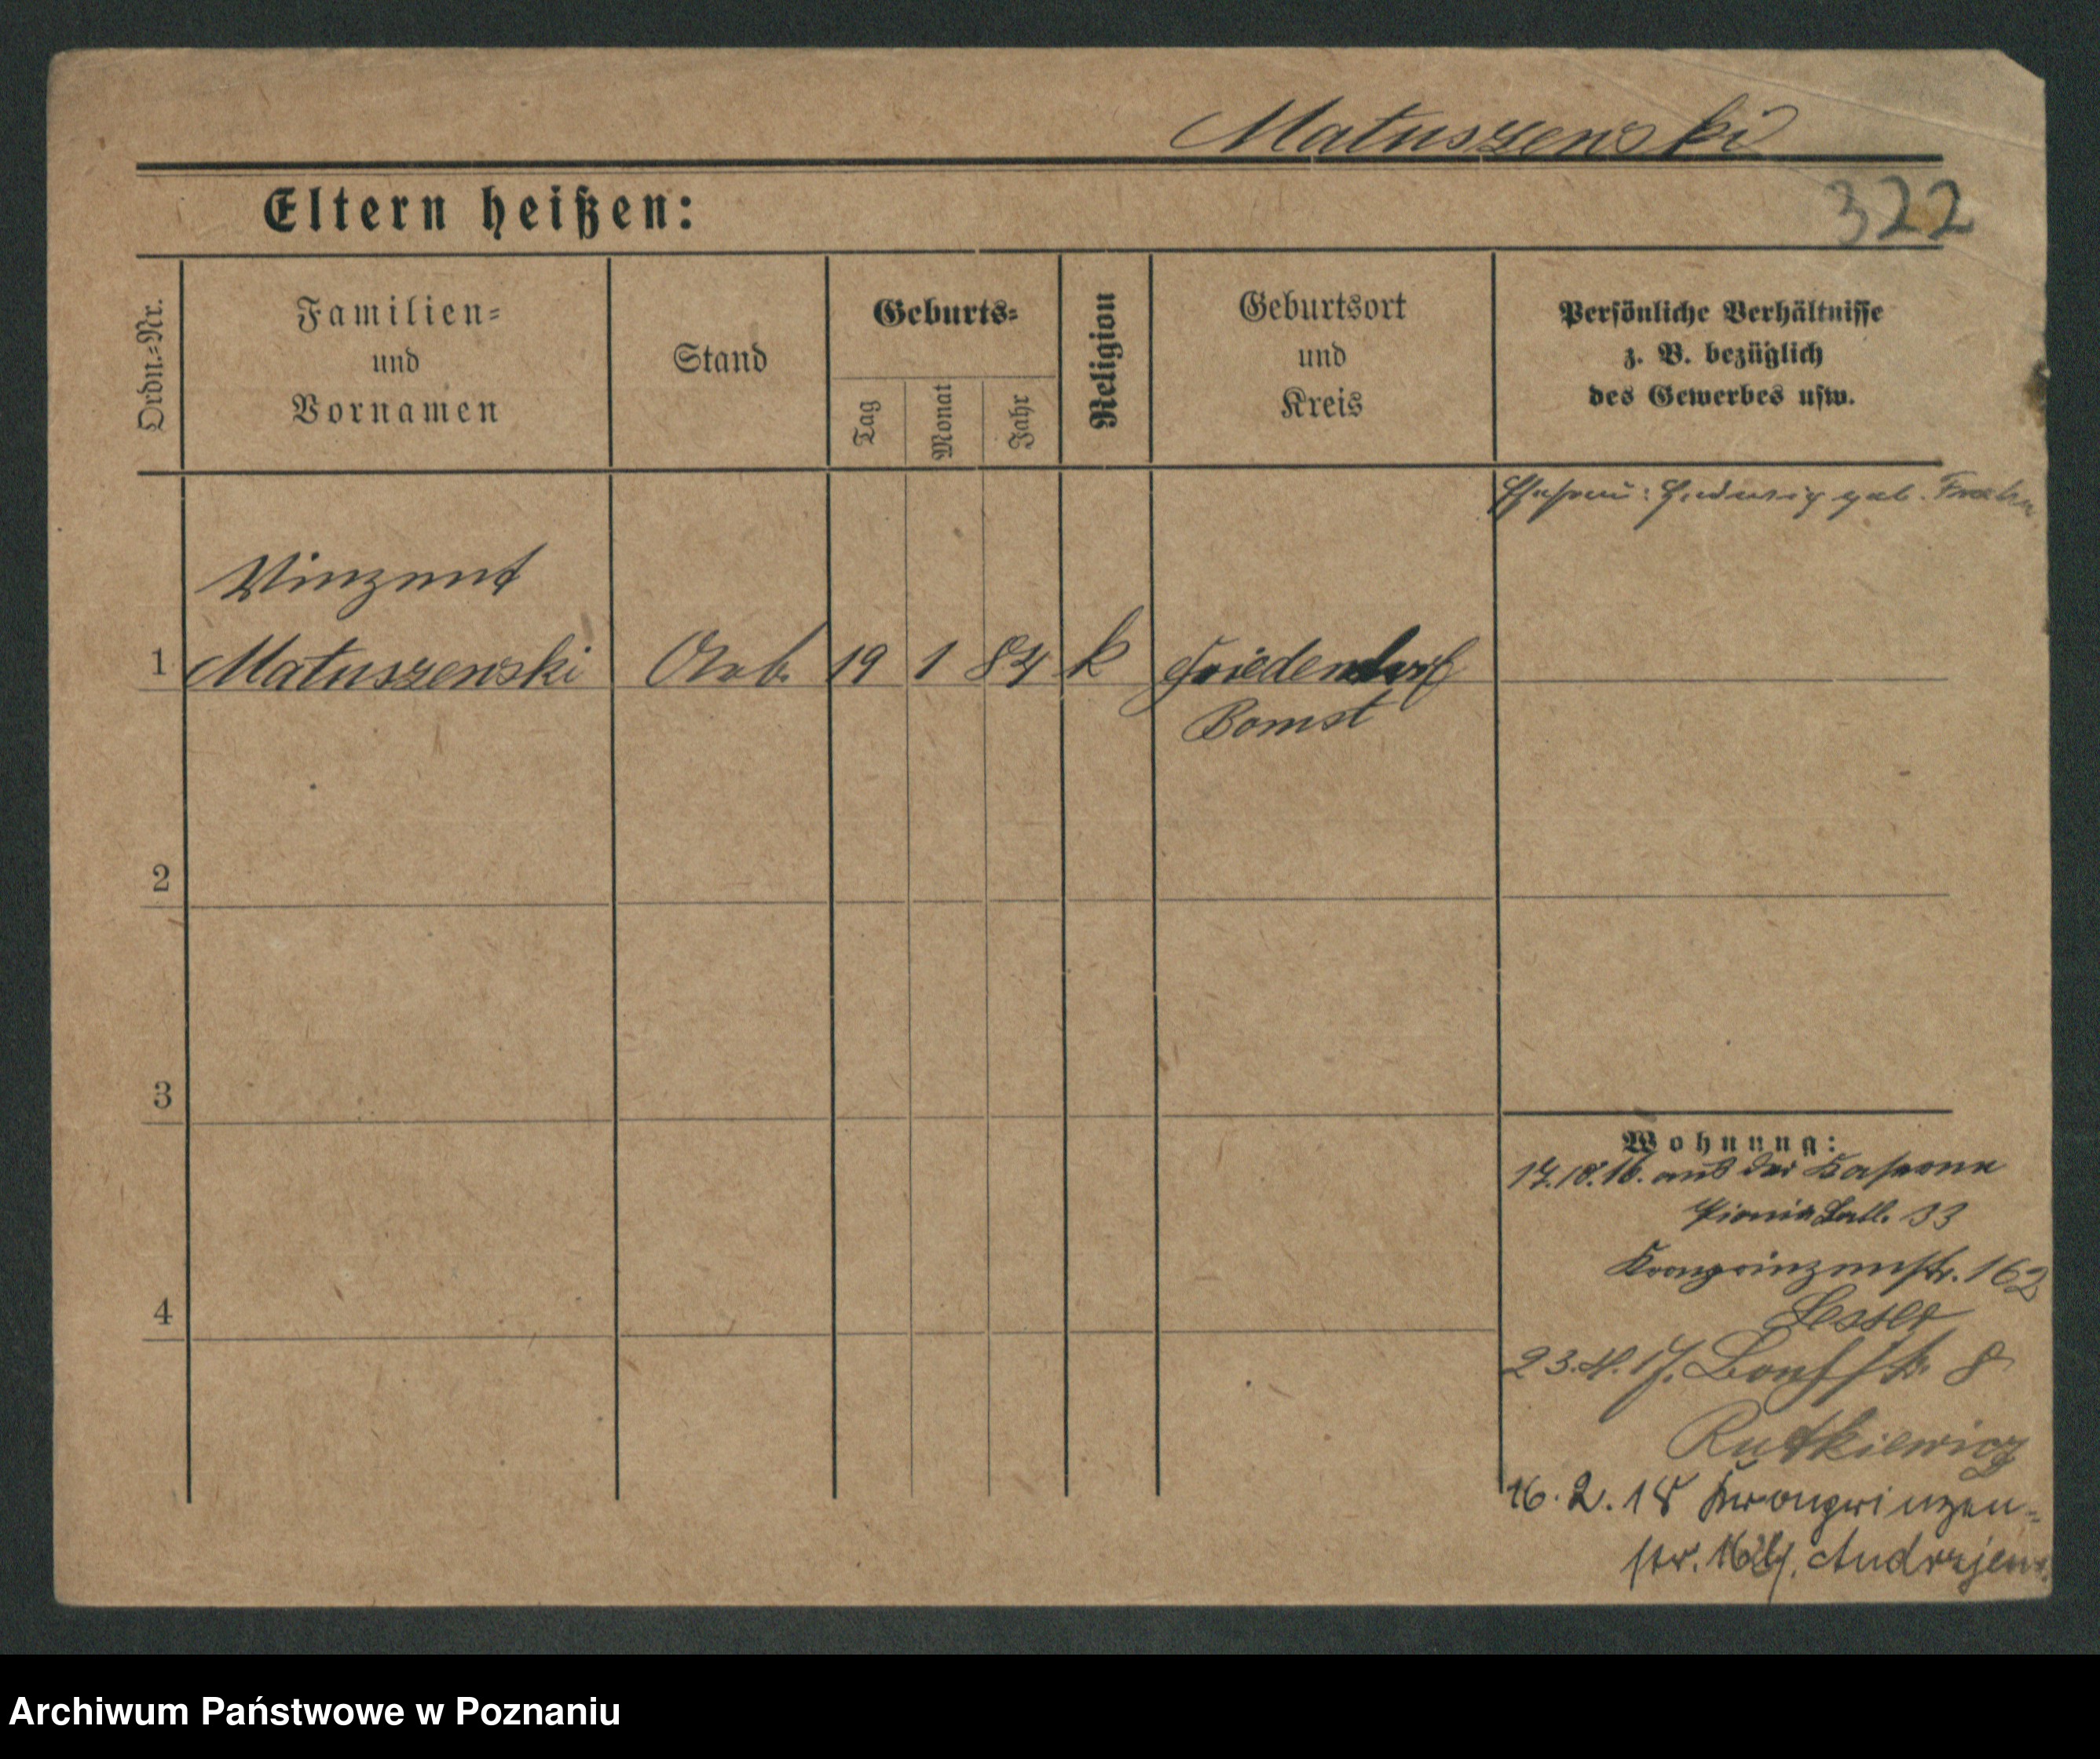 Matuszewski
322
Eltern heißen:
Ordn.=Nr.
Familien=
und
Vornamen
Stand
Geburts=
Tag
Monat
Jahr
Religion
Geburtsort
und
Kreis
Persönliche Verhältnisse
z. B. bezüglich
des Gewerbes usw.
Ehefrau: Hedwig geb.
Vinzent
1 Matuszewski Arb. 19 1 84 k Friedendorf
Bomst
2
3
4
Wohnung:
17.10.16. aus der Kaserne
Pionir Batl. 33
Kronprinzenstr. 162
Lesser
23.4.17. 8
Rutkiewicz
16.2.18 Kronprinzen-
str. Andrzejew.
Archiwum Państwowe w Poznaniu